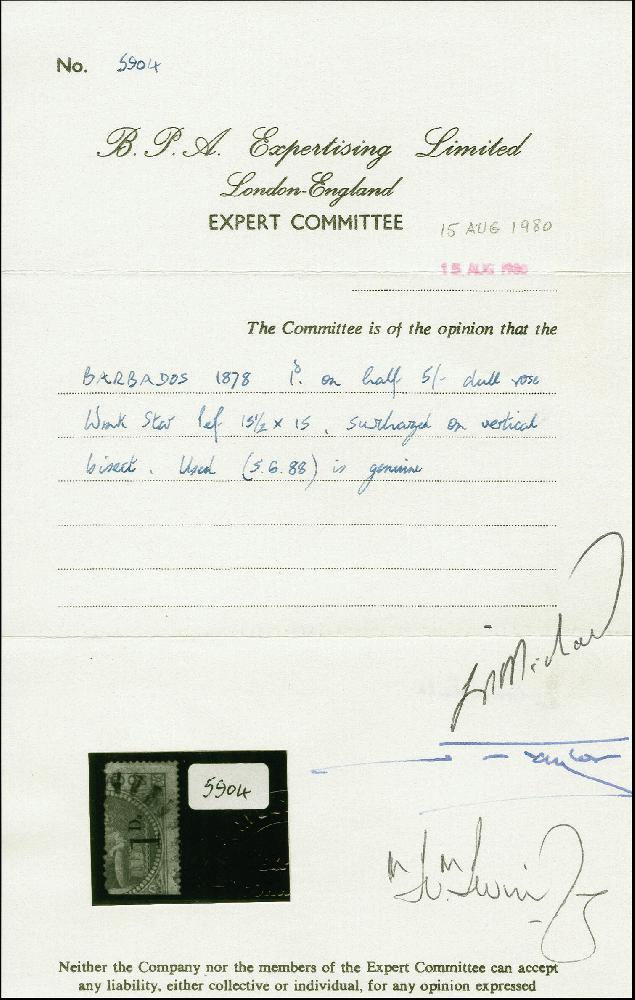 No. 5904
B. P. A. Expertising Limited
London-England
EXPERT COMMITTEE
15 AUG 1980
15 AUG 1980
The Committee is of the opinion that the
BARBADOS 1878 1d. on half 5/- dull rose
Wmk Star Perf 15½ x 15, surcharged on vertical
bisect. Used (5.6.88) is genuine
5904
1D.
Neither the Company nor the members of the Expert Committee can accept
any liability, either collective or individual, for any opinion expressed